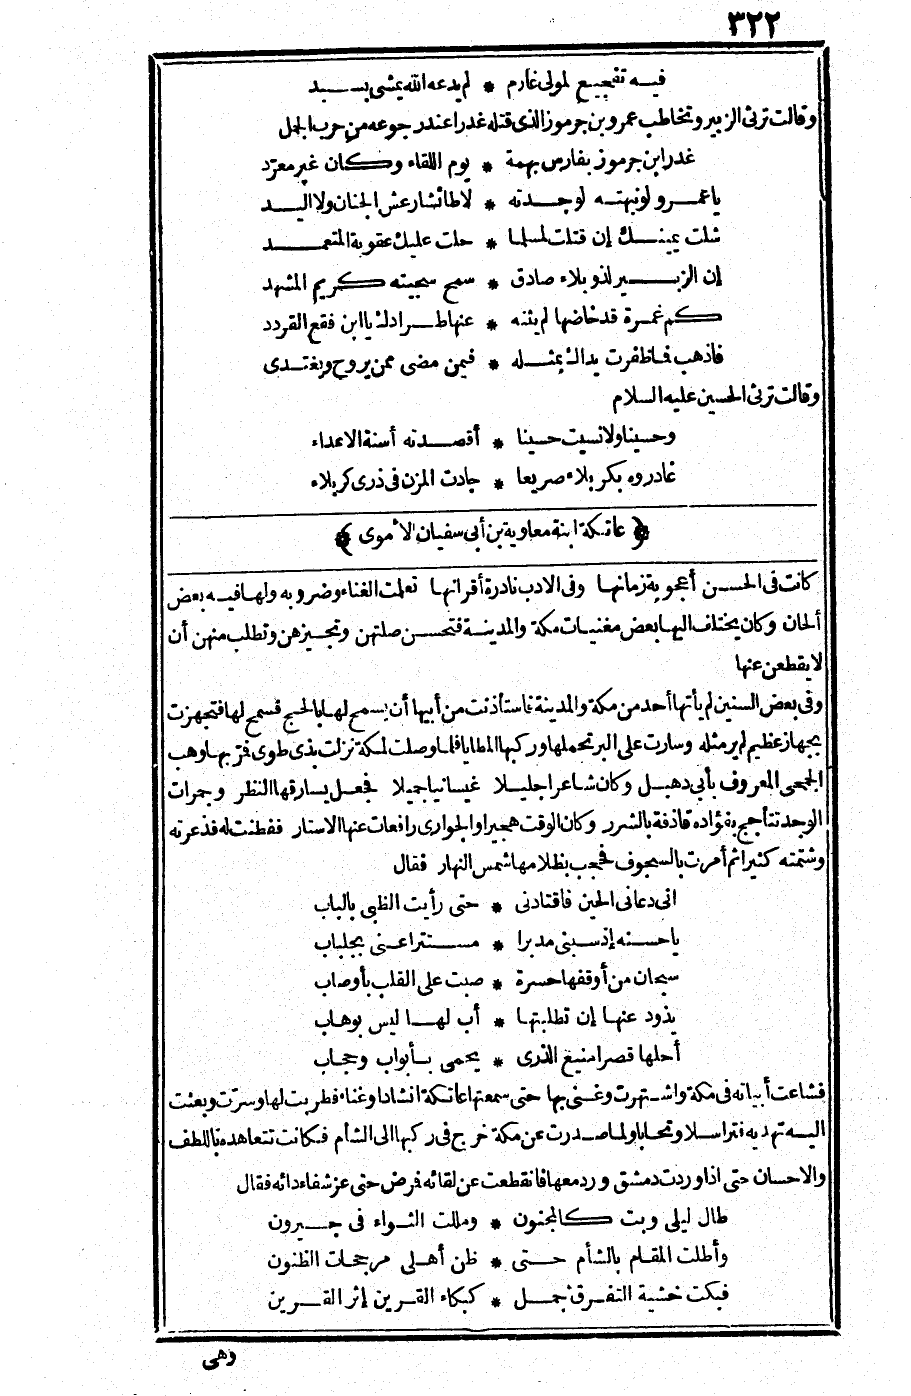 ٣٢٢
فيه تفجيع لمولى غارم * لم يدعه الله يمشى بسبد
وقالت ترثى الزبير وتخاطب عمرو بن جرموز الذى قتله غدرا عند رجوعه من حرب الجمل
غدر ابن جرموز بفارس بهمة * يوم اللقاء وكان غير معرّد
يا عمرو لو نبهته لوجدته * لا طائشا رعش الجنان ولا اليد
شلت يمينك إن قتلت لمسلما * حلت عليك عقوبة المتعمد
إن الزبير لذو بلاء صادق * سمح سجيته كريم المشهد
كم غمرة قد خاضها لم يثنه * عنها طرادك يا ابن فقع القردد
فاذهب فما ظفرت يداك بمثله * فيمن مضى ممن يروح ويغتدى
وقالت ترثى الحسين عليه السلام
وحسينا ولا نسيت حسينا * أقصدته أسنة الاعداء
غادروه بكربلاء صريعا * جادت المزن فى ذرى كربلاء
﴿ عاتكة ابنة معاوية بن أبى سفيان الأموى ﴾
كانت فى الحسن أعجوبة زمانها وفى الادب نادرة أقرانها تعلمت الغناء وضروبه ولها فيه بعض
ألحان وكان يختلف اليها بعض مغنيات مكة والمدينة فتحسن صلتهن وتجيزهن وتطلب منهن أن
لا يقطعن عنها
وفى بعض السنين لم يأتها أحد من مكة والمدينة فاستأذنت من أبيها أن يسمح لها بالحج فسمح لها فتجهزت
بجهاز عظيم لم ير مثله وسارت على البر تحملها وركبها المطايا فلما وصلت لمكة نزلت بذى طوى فمر بها وهب
الجمحى المعروف بأبى دهبل وكان شاعرا جليلا غيسانيا جميلا فجعل يسارقها النظر وجمرات
الوجد تتأجج بفؤاده قاذفة بالشرر وكان الوقت هجيرا والجوارى رافعات عنها الاستار ففطنت له فذعرته
وشتمته كثيرا ثم أمرت بالسجوف فحجب بظلامها شمس النهار فقال
انى دعانى الحين فاقتادنى * حتى رأيت الظبى بالباب
يا حسنه إذ سبنى مدبرا * مستترا عنى بجلباب
سبحان من أوقفها حسرة * صبت على القلب بأوصاب
يذود عنها إن تطلبتها * أب لها ليس بوهاب
أحلها قصرا منيع الذرى * يحمى بأبواب وحجاب
فشاعت أبياته فى مكة واشتهرت وغنى بها حتى سمعتها عاتكة انشادا وغناء فطربت لها وسرت وبعثت
اليه تهديه فتراسلا وتحابا ولما صدرت عن مكة خرج فى ركبها الى الشأم فكانت تتعاهده باللطف
والاحسان حتى اذا وردت دمشق ورد معها فانقطعت عن لقائه فرض حتى عز شفاء دائه فقال
طال ليلى وبت كالمجنون * ومللت الثواء فى جيرون
وأطلت المقام بالشأم حتى * ظن أهلى مرجحات الظنون
فبكت خشية التفرق جمل * كبكاء القرين إثر القرين
وهى